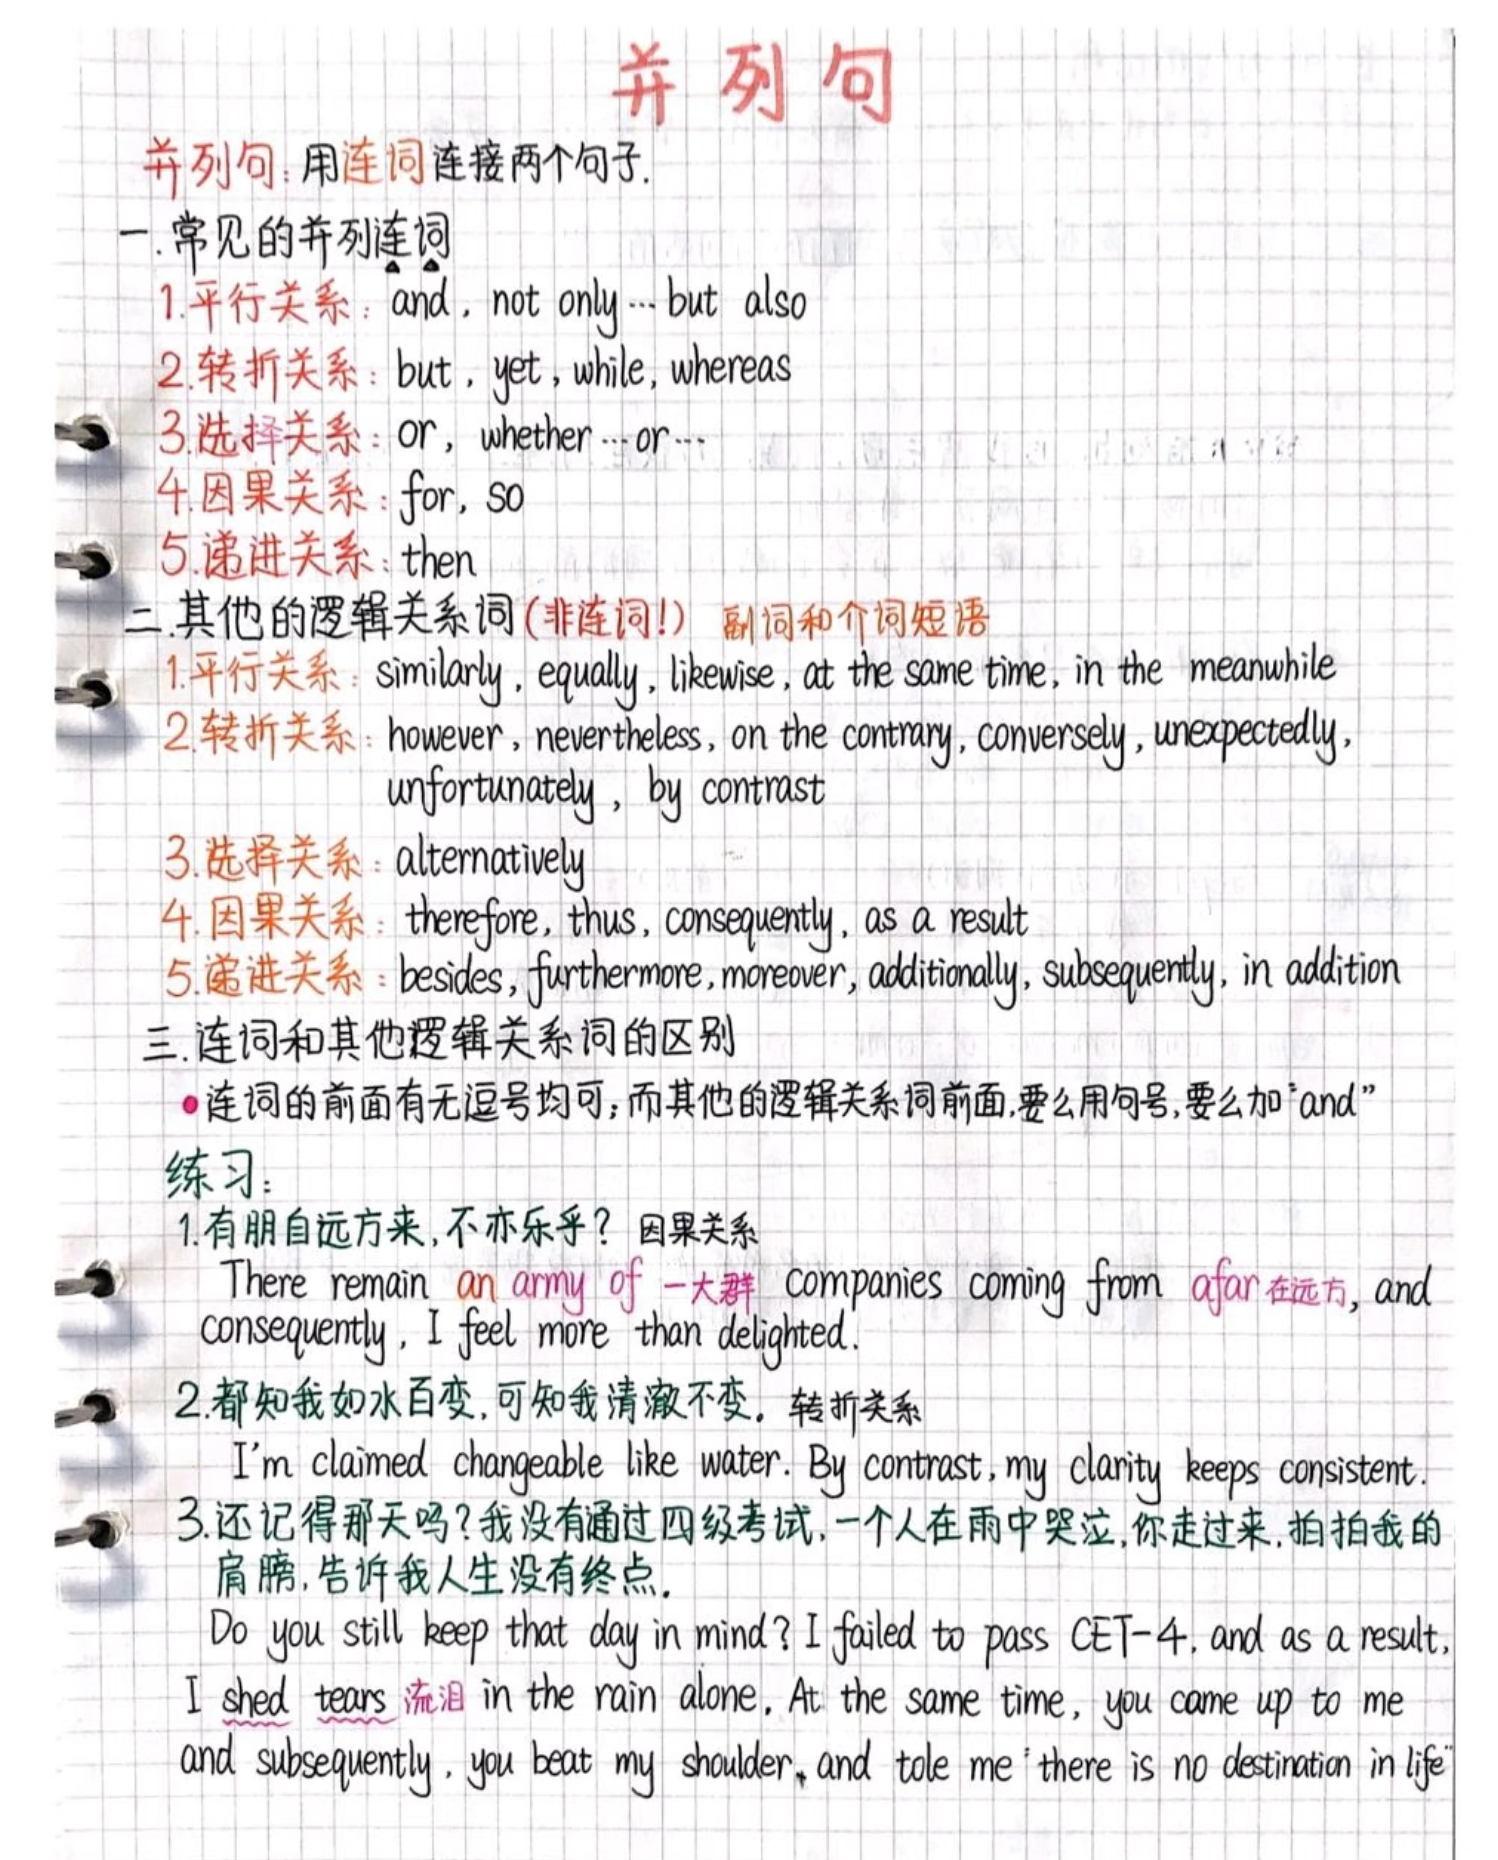 并列句
并列句：用连词连接两个句子.
一.常见的并列连词
1.平行关系：and, not only…but also
2.转折关系：but, yet, while, whereas
3.选择关系：or, whether…or…
4.因果关系：for, so
5.递进关系：then
二.其他的逻辑关系词(非连词!) 副词和介词短语
1.平行关系：similarly, equally, likewise, at the same time, in the meanwhile
2.转折关系：however, nevertheless, on the contrary, conversely, unexpectedly,
unfortunately, by contrast
3.选择关系：alternatively
4.因果关系：therefore, thus, consequently, as a result
5.递进关系：besides, furthermore, moreover, additionally, subsequently, in addition
三.连词和其他逻辑关系词的区别
•连词的前面有无逗号均可；而其他的逻辑关系词前面,要么用句号,要么加“and”
练习：
1.有朋自远方来,不亦乐乎？ 因果关系
There remain an army of 一大群 companies coming from afar 在远方, and
consequently, I feel more than delighted.
2.都知我如水百变,可知我清澈不变。 转折关系
I'm claimed changeable like water. By contrast, my clarity keeps consistent.
3.还记得那天吗？我没有通过四级考试,一个人在雨中哭泣,你走过来,拍拍我的
肩膀,告诉我人生没有终点。
Do you still keep that day in mind? I failed to pass CET-4, and as a result,
I shed tears 流泪 in the rain alone. At the same time, you came up to me
and subsequently, you beat my shoulder, and tole me “there is no destination in life”